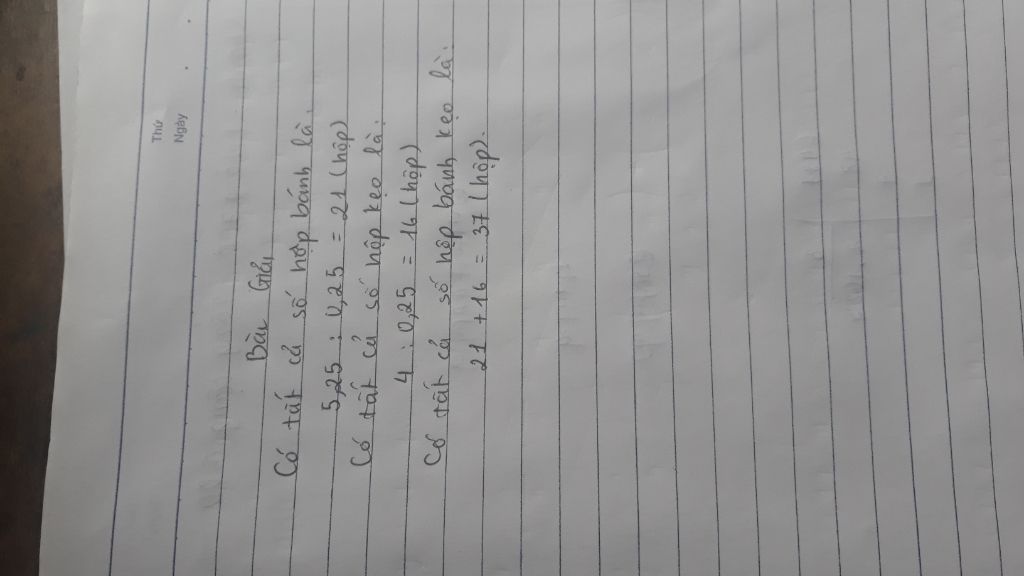 Thứ
Ngày
Bài Giải
Có tất cả số hợp bánh là:
5,25 : 0,25 = 21 (hộp)
Có tất cả số hộp kẹo là:
4 : 0,25 = 16 (hộp)
Có tất cả số hộp bánh kẹo là:
21 + 16 = 37 (hộp).